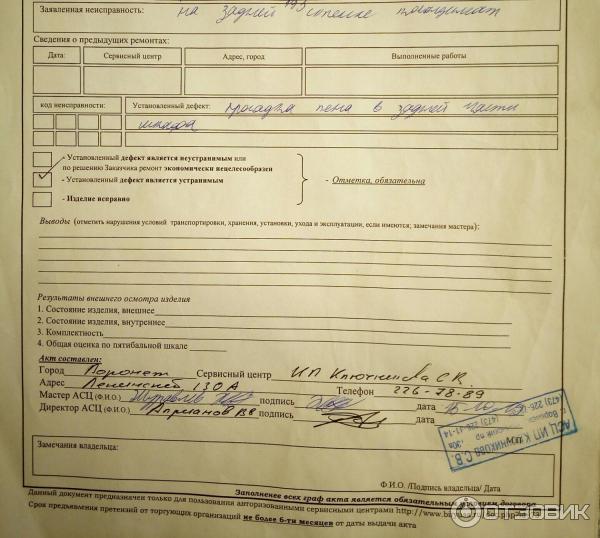 Заявленная неисправность: на задней стенке
Сведения о предыдущих ремонтах:
Дата: Сервисный центр Адрес, город Выполненные работы
код неисправности: Установленный дефект: просадка пена в задней части
шкафа
- Установленный дефект является неустранимым или
по решению Заказчика ремонт экономически нецелесообразен
- Установленный дефект является устранимым
- Отметка, обязательна
- Изделие исправно
Выводы (отметить нарушения условий транспортировки, хранения, установки, ухода и эксплуатации, если имеются; замечания мастера):
Результаты внешнего осмотра изделия
1. Состояние изделия, внешнее
2. Состояние изделия, внутреннее
3. Комплектность
4. Общая оценка по пятибальной шкале
Акт составлен:
Город Воронеж Сервисный центр ИП Ключникова С.В.
Адрес Ленинский 130А Телефон 226-78-89
Мастер АСЦ (Ф.И.О.) подпись дата
Директор АСЦ (Ф.И.О.) подпись дата
М.П.
АСЦ ИП КЛЮЧНИКОВА С.В.
Замечания владельца:
Ф.И.О. /Подпись владельца/ Дата
Заполнение всех граф акта является обязательным условием договора
Данный документ предназначен только для пользования авторизованными сервисными центрами
Срок предъявления претензий от торгующих организаций не более 6-ти месяцев от даты выдачи акта
ОТЗОВИК